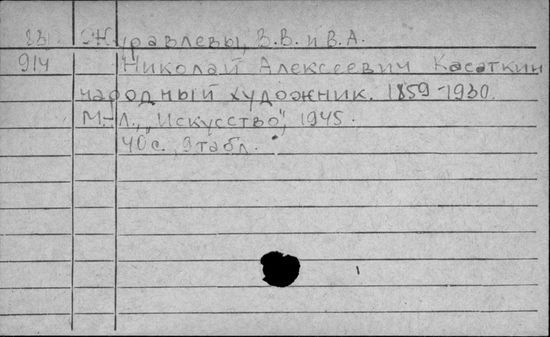 Журавлевы, В.В. и В.А.
914 Николай Алексеевич Касаткин
народный художник. 1859-1930.
М.-Л., "Искусство", 1945.
40 с., 9 табл.